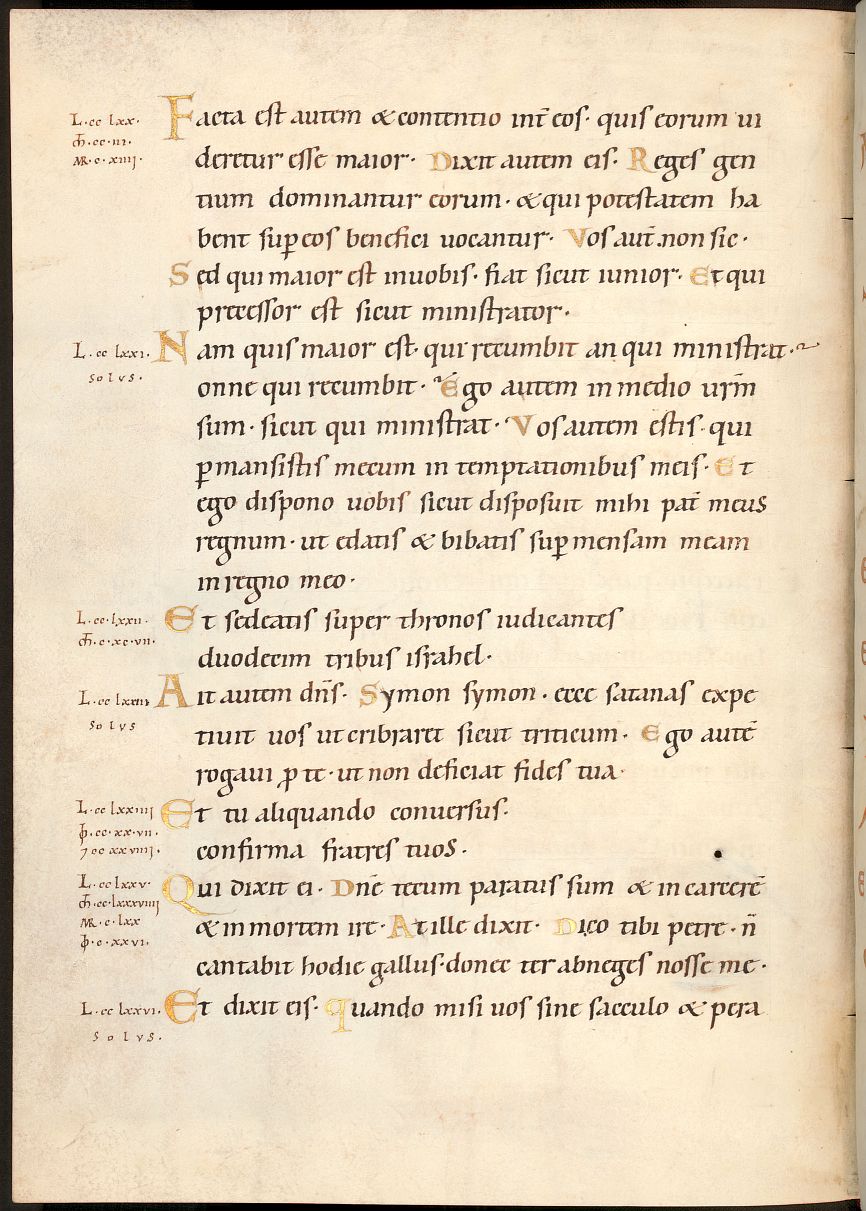 L·cc lxx·
M̄·cc·III·
MR·c·xIIII·
Facta est autem & contentio int̄ eos· quis eorum ui
deretur esse maior· Dixit autem eis· Reges gen
tium dominantur eorum· & qui potestatem ha
bent sup eos benefici uocantur· Vos aut̄ non sic·
Sed qui maior est in uobis· fiat sicut iunior· Et qui
precessor est sicut ministrator·
L·cc lxxI·
soLVS·
Nam quis maior est· qui recumbit an qui ministrat·
onne qui recumbit· Ego autem in medio urm̄
sum· sicut qui ministrat· Vos autem estis· qui
ꝑmansistis mecum in temptationibus meis· Et
ego dispono uobis sicut disposuit mihi pat̄ meus
regnum· ut edatis & bibatis suꝑ mensam meam
in regno meo·
L·cc·lxxII·
M̄·c·xc·VII·
Et sedeatis super thronos iudicantes
duodecim tribus israhel·
L·cc lxxIII
SoLVS
Ait autem dn̄s· Symon symon· ecce satanas expe
tiuit uos ut cribraret sicut triticum· Ego autē
rogaui ꝓ te· ut non deficiat fides tua·
L·cc lxxIIII
cc·xx·VII·
7 cc xxVIIII·
Et tu aliquando conuersus·
confirma fratres tuos·
L·cc lxxV·
M̄·cc·lxxxVIIII
MR·c·lxx
c·xxVI·
Qui dixit ei· Dn̄e tecum paratus sum & in carcerē
& in mortem ire· At ille dixit· Dico tibi petre· n̄
cantabit hodie gallus· donec ter abneges nosse me·
L·cc lxxVI·
SoLVS·
Et dixit eis· Quando misi uos sine sacculo & pera